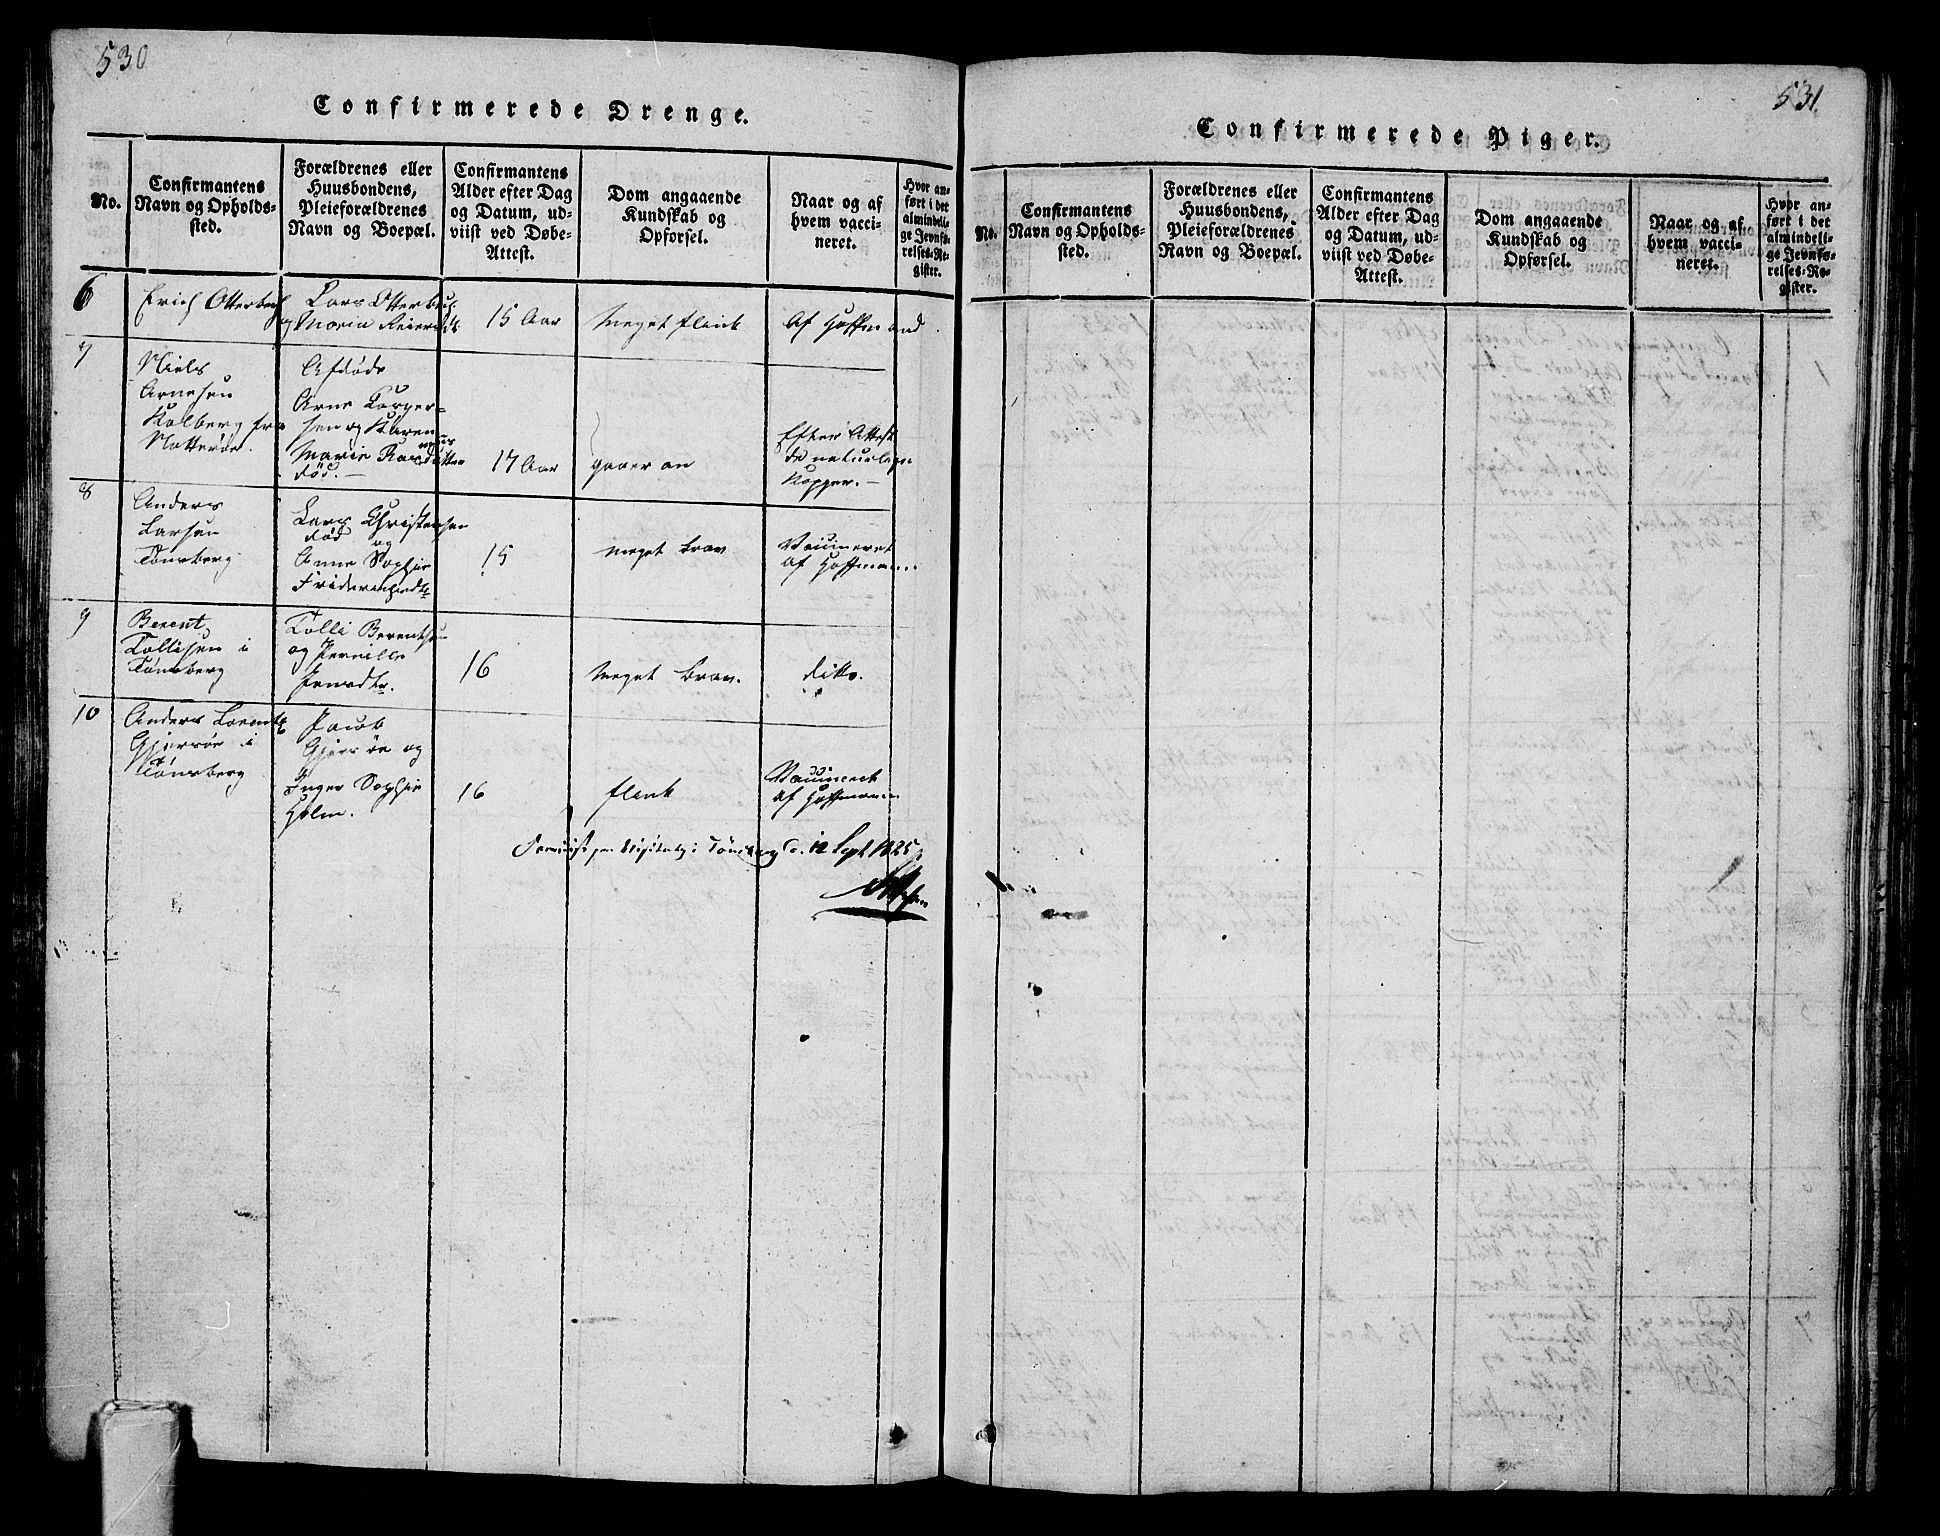 530
Confirmerede Drenge.
No.
Confirmantens
Navn og Opholds-
sted.
Forældrenes eller
Huusbondens,
Pleieforældrenes
Navn og Boepæl.
Confirmantens
Alder efter Dag
og Datum, ud-
viist ved Døbe-
Attest.
Dom angaaende
Kundskab og
Opførsel.
Naar og af
hvem vacci-
neret.
Hvor an-
ført i det
almindeli-
ge Jevnfø-
relses-Re-
gister.
6
Erich Otterbech
Lars Otterbech
og Maria Reiersdtr.
15 Aar
Meget flink
Af Hoffmand
7
Niels
Arnesen
Kolberg fra
Nøtterøe.
Afdøde
Arne Torger-
sen og Karen
Marie Rasmusdatter
død.
17 Aar
gaaer an
Efter Attest
de naturlige
Kopper.
8
Anders
Larsen
Tønsberg
Lars Christensen
død og
Anne Sophie
15
meget brav
Vaccineret
af Hoffmann
9
Berent
Tollisen i
Tønsberg
Tolli Berentsen
og Pernille
Jensdtr.
16
Meget brav.
ditto.
10
Anders Lorentz
Gjersøe i
Tønsberg
Jacob
Gjersøe og
Inger Sophie
Holm.
16
flink
Vaccineret
af Hoffmann
Fremviist paa Visitatz i Tønsberg d. 12 Sept 1825
531.
Confirmerede Piger.
No.
Confirmantens
Navn og Opholds-
sted.
Forældrenes eller
Huusbondens,
Pleieforældrenes
Navn og Boepæl.
Confirmantens
Alder efter Dag
og Datum, ud-
viist ved Døbe-
Attest.
Dom angaaende
Kundskab og
Opførsel.
Naar og af
hvem vacci-
neret.
Hvor an-
ført i det
almindeli-
ge Jevnfø-
relses-Re-
gister.